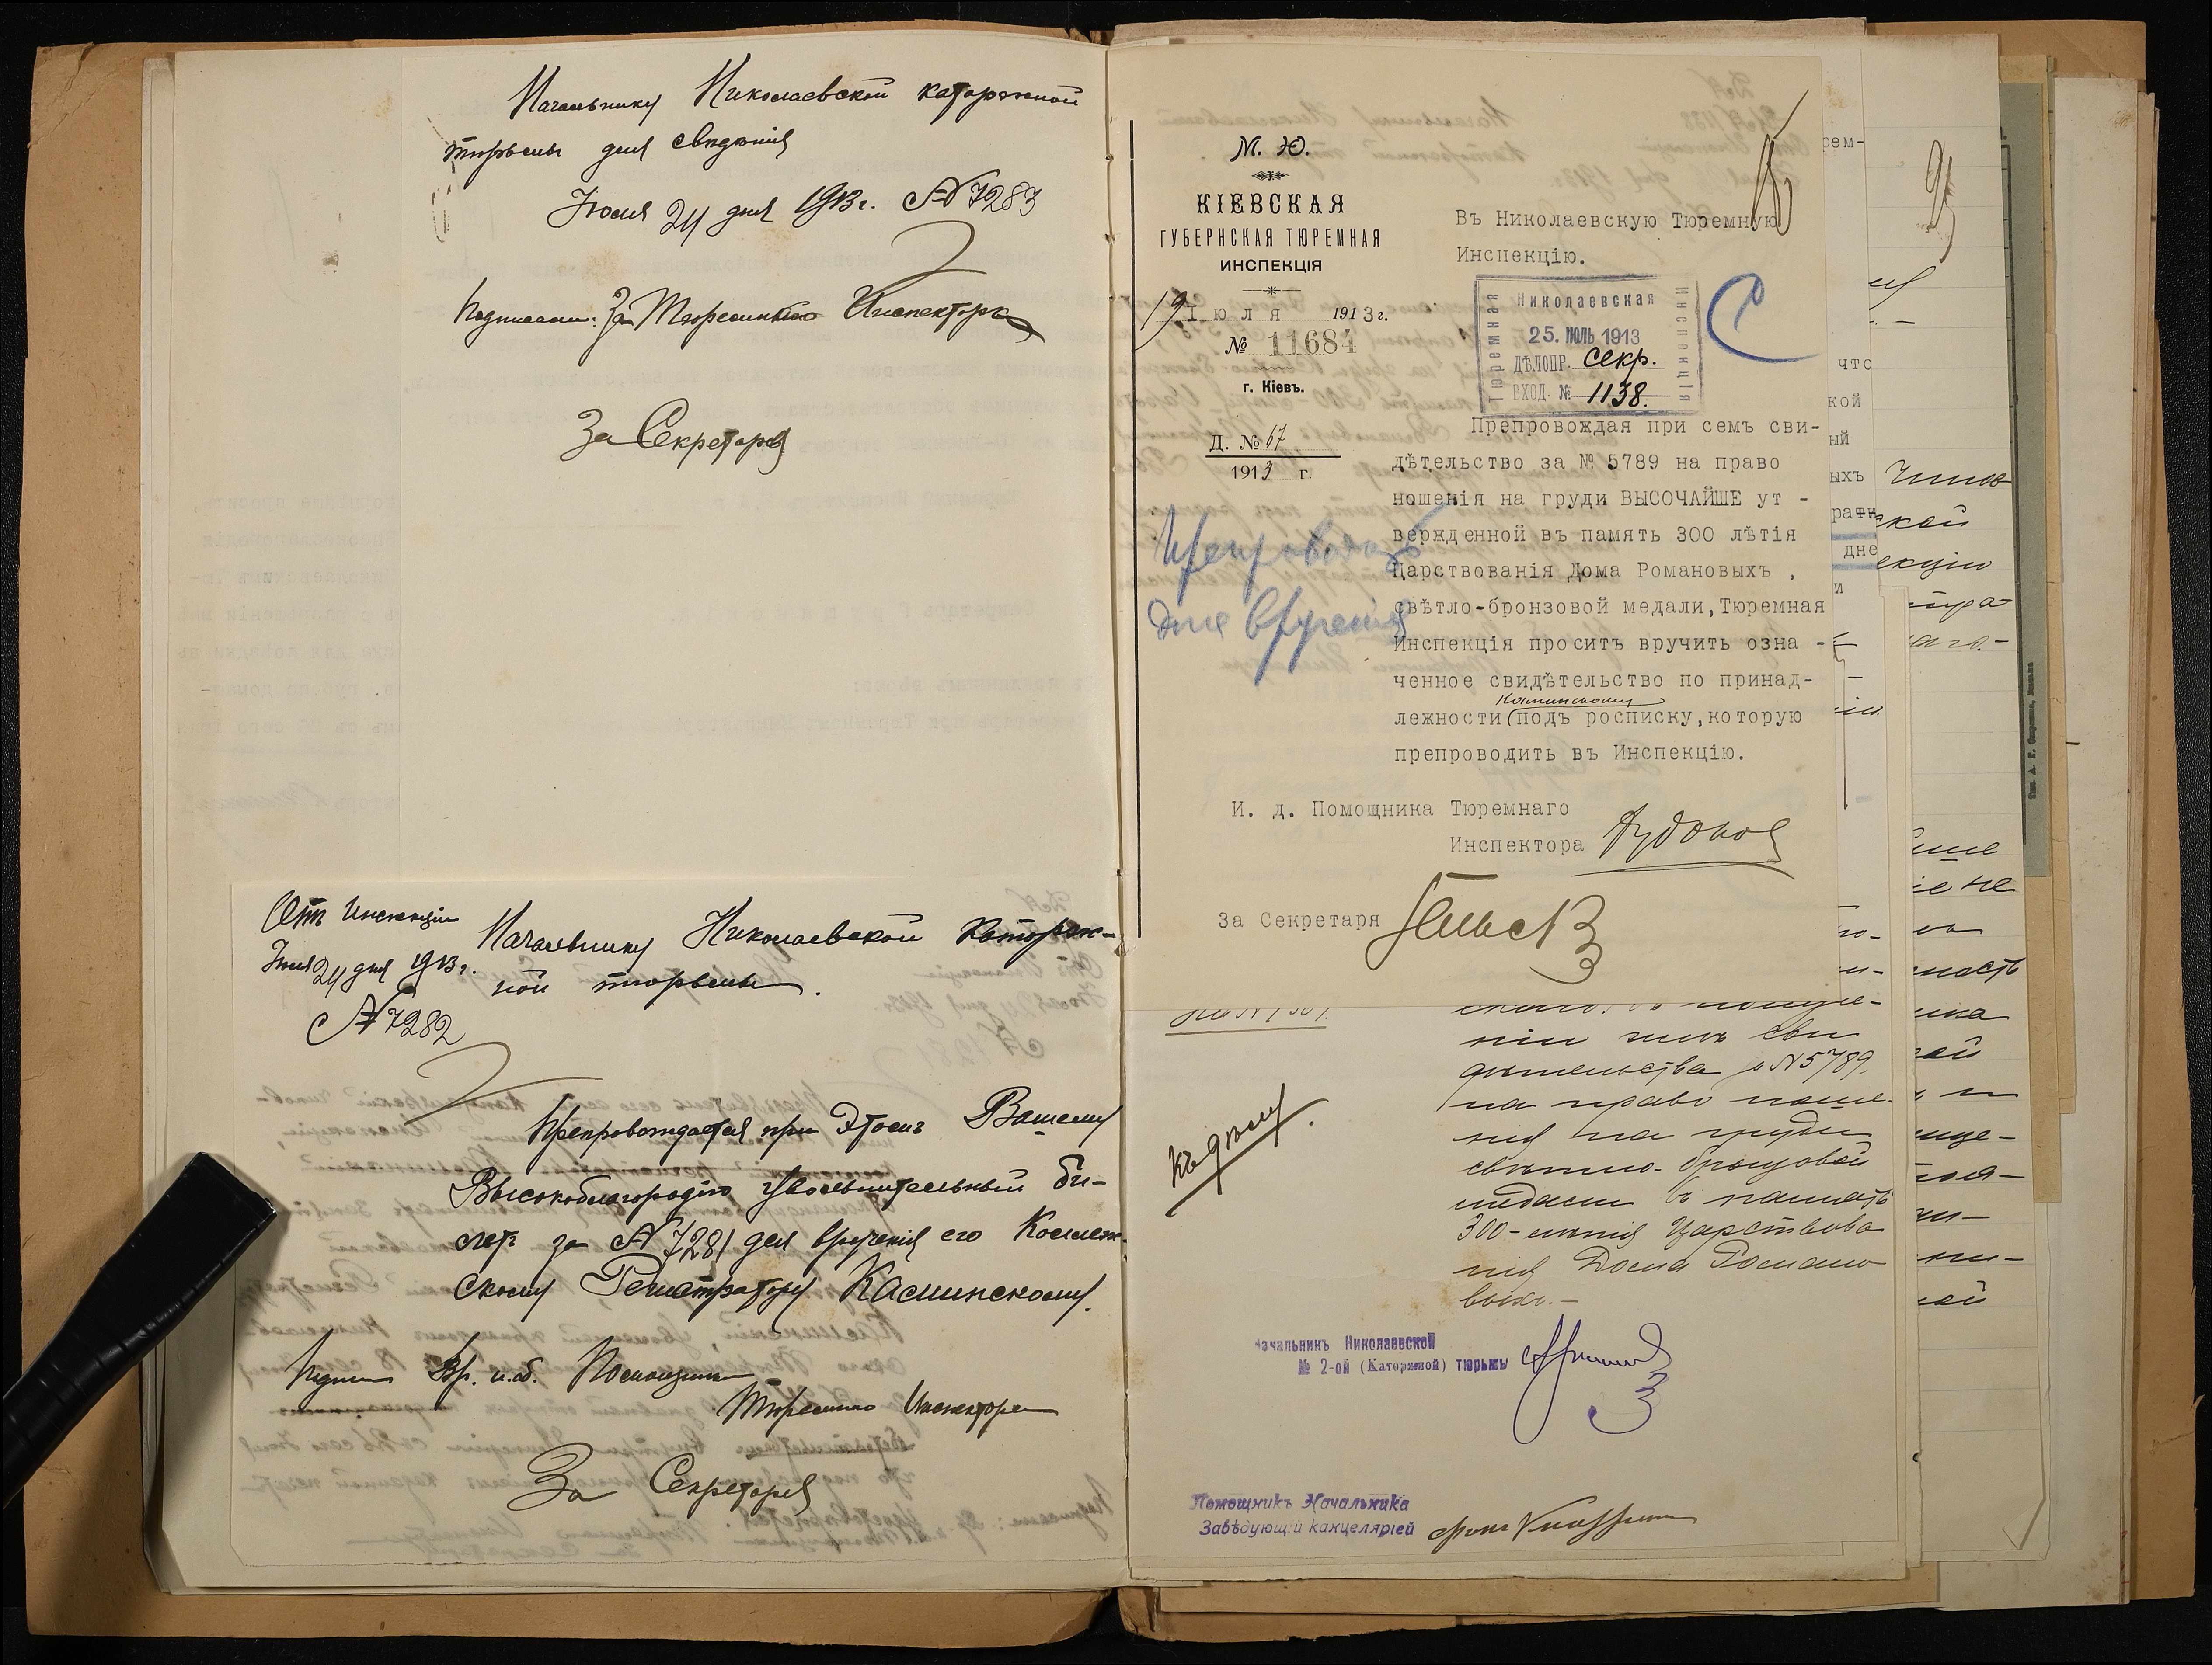 Начальнику Николаевской каторжной
тюрьмы для свѣдѣнія
Іюля 24 дня 1913 г. № 7283
Подписали: За Тюремнаго Инспектора
За Секретаря
Отъ Инспекціи
Іюля 24 дня 1913 г.
№ 7282
Начальнику Николаевской Каторж-
ной тюрьмы.
Препровождается при этомъ Вашему
Высокоблагородію увольнительный би-
летъ за № 7281 для врученія его Коллеж-
скому Регистратору Каминскому.
Вр. и. об. Помощника
Тюремнаго Инспектора
За Секретаря
М. Ю.
КІЕВСКАЯ
ГУБЕРНСКАЯ ТЮРЕМНАЯ
ИНСПЕКЦІЯ
19 Іюля 1913 г.
№ 11684
г. Кіевъ.
Д. № 67
1913 г.
Препроводить
для врученія
Въ Николаевскую Тюремную
Инспекцію.
Николаевская
Тюремная
Инспекція
25. ІЮЛЬ 1913
ДѢЛОПР. секр.
ВХОД. № 1138.
Препровождая при семъ сви-
дѣтельство за № 5789 на право
ношенія на груди ВЫСОЧАЙШЕ ут -
вержденной въ память 300 лѣтія
Царствованія Дома Романовыхъ ,
свѣтло-бронзовой медали,Тюремная
Инспекція просить вручить озна -
ченное свидѣтельство по принад-
Каминскому
лежности (подъ росписку,которую
препроводить въ Инспекцію.
И. д. Помощника Тюремнаго
Инспектора
За Секретаря
ніи имъ сви
дѣтельства за № 5789.
на право ноше-
нія на груди
свѣтло-бронзовой
медали въ память
300-лѣтія Царствова
нія Дома Романо
выхъ.-
Къ дѣлу.
Начальникъ Николаевской
№ 2-ой (Каторжной) тюрьмы
Помощникъ Начальника
Завѣдующій канцеляріей
рем-
что
кой
ый
ыхъ
дне
и
Тип. А. Г.